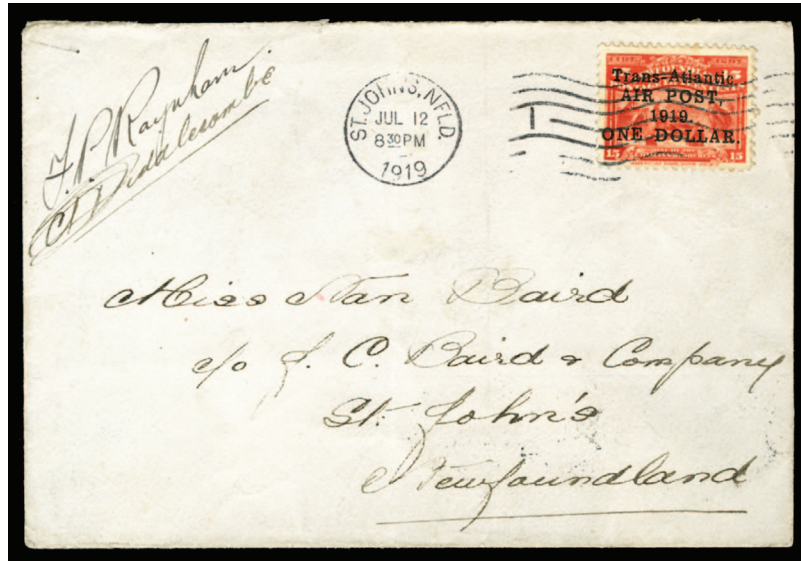 F. P. Raynham.
C. Biddlecombe
ST. JOHN'S, NFLD.
JUL 12
8 30 PM
1919
Trans-Atlantic
AIR POST,
1919.
ONE DOLLAR.
15 15
Miss Nan Baird
c/o J. C. Baird & Company
St. John's
Newfoundland